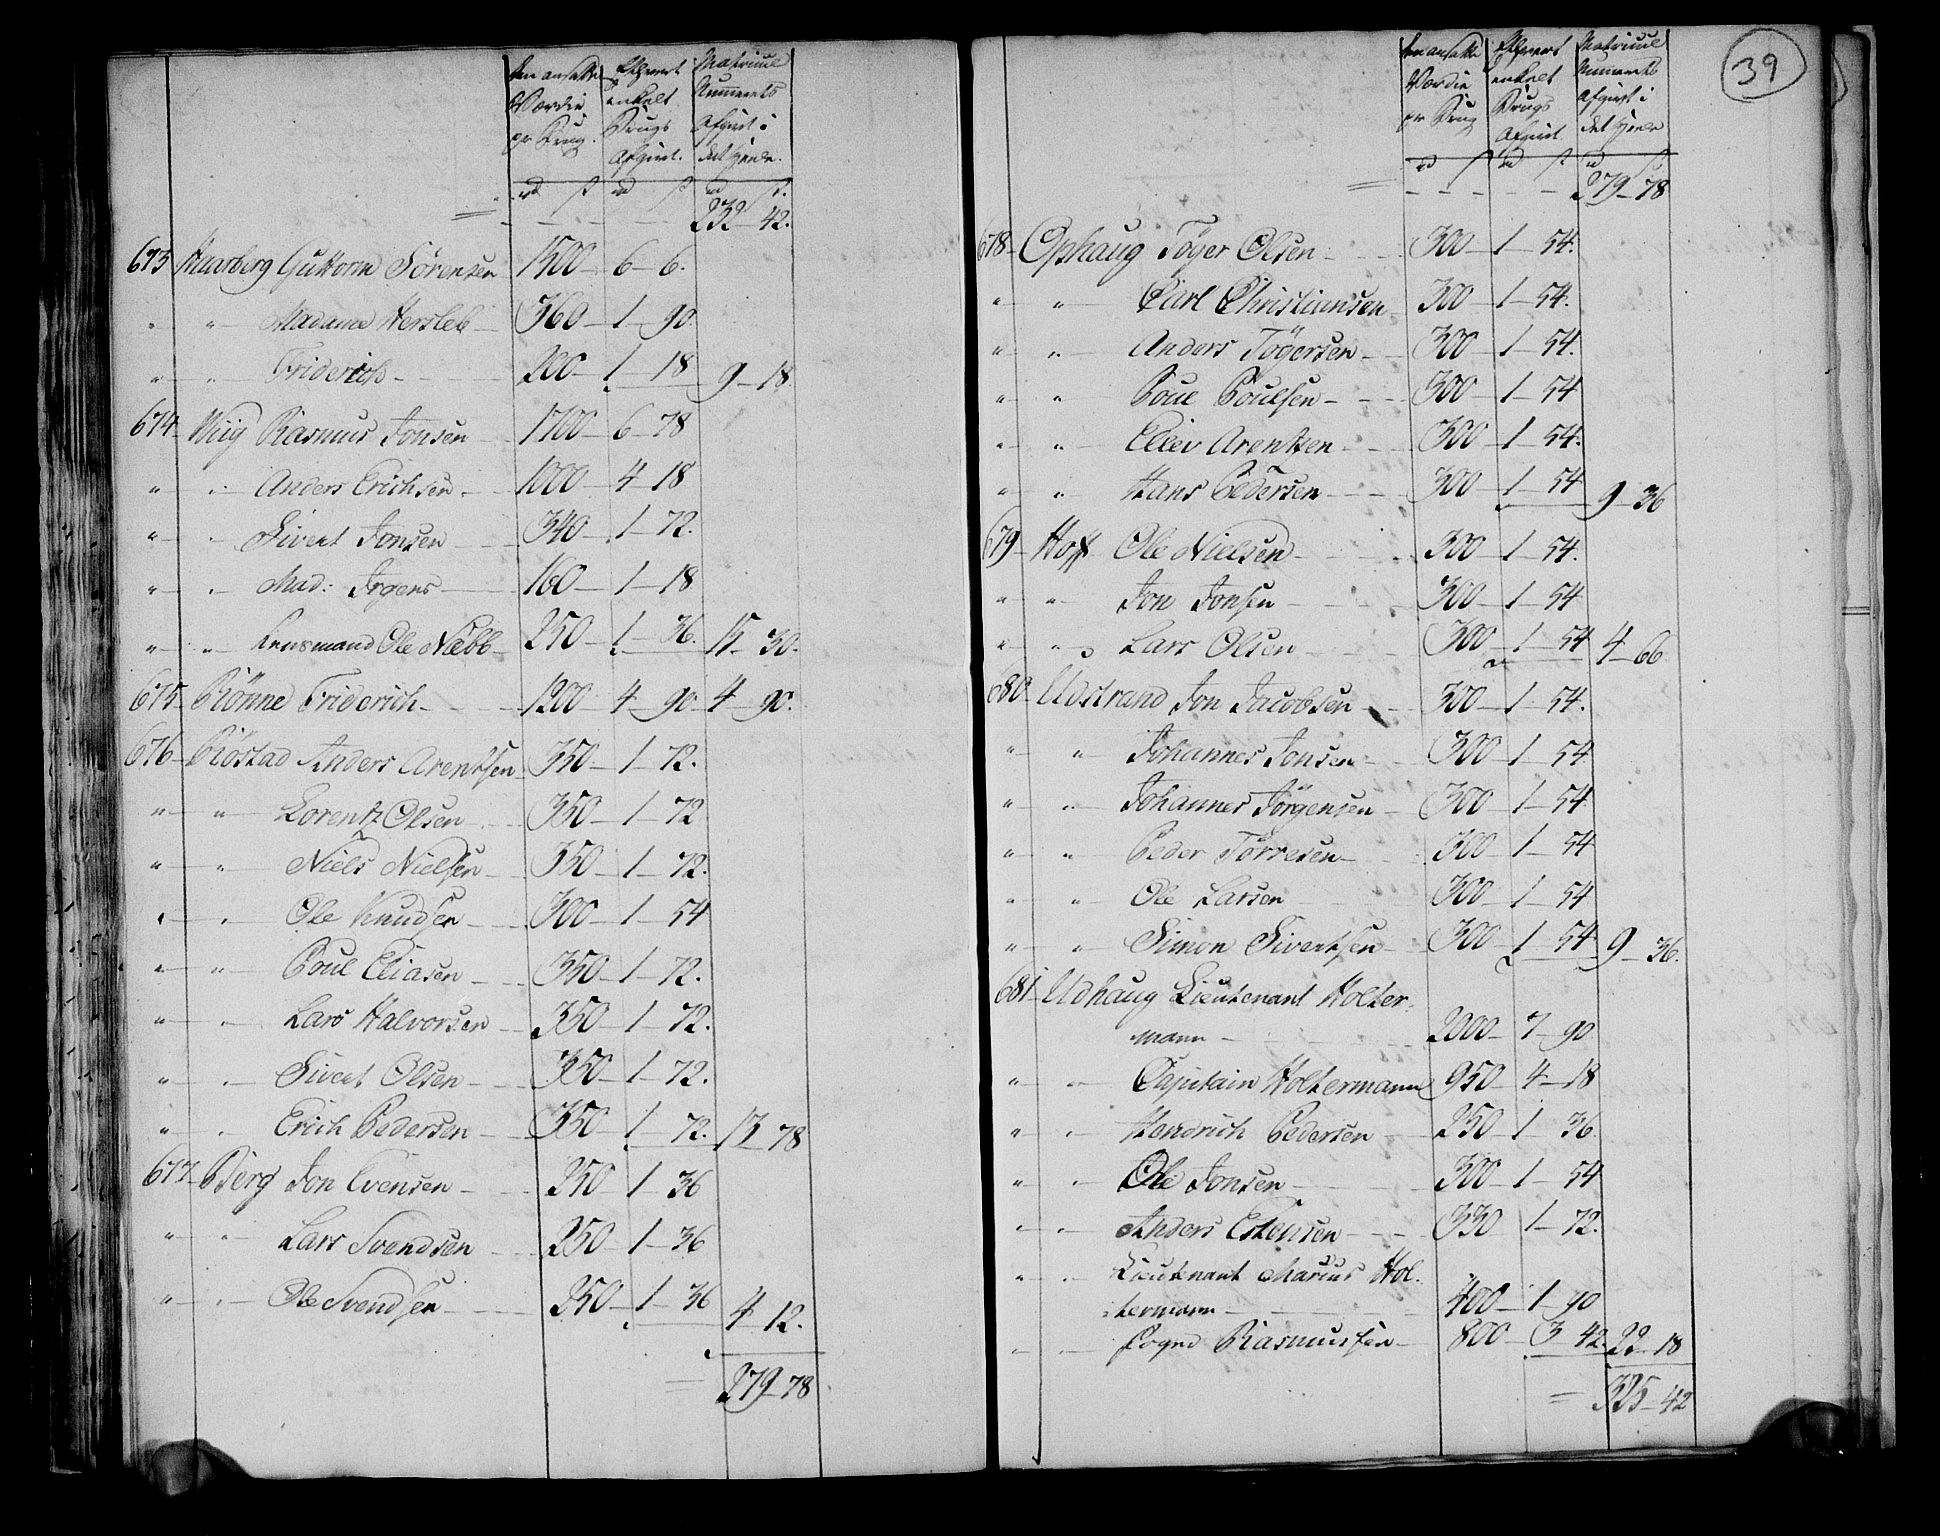 den ansatte Værdie pr Brug. | Ethvert enkelt Brugs Afgivt. | Matricul Nummerets Afgivt i det Heele.
rd ß | rd ß | rd ß.
= - - - - - 232 - 42.
673 Haarberg Guttorm Sörensen 1500 - 6 - 6.
" " Madame Hersleb - 360 - 1 - 90
" " Friderich - 200 - 1 - 18 9 - 18
674 - Wiig Rasmus Jonsen 1700 - 6 - 78
" " Anders Erichsen - 1000 - 4 - 18
" " Sivert Jonsen 340 - 1 - 72.
" " Mad: Irgens 160 - 1 - 18
" " Lensmand Ole Næbb - 250 - 1 - 36. 15 - 30.
675 - Rönne Friderich - 1200 - 4 - 90 4 - 90.
676 - Röstad Anders Arentsen 350 - 1 - 72.
" " Lorentz Olsen 350 - 1 - 72
" " Niels Nielsen 350 - 1 - 72.
" " Ole Knudsen 300 - 1 - 54
" " Poul Eliasen 350 - 1 - 72.
" " Lars Halvorsen 350 - 1 - 72.
" " Sivert Olsen 350 - 1 - 72.
" " Erich Pedersen 350 - 1 - 72. 13 - 78
677 - Berg Jon Evensen 250 - 1 - 36
" " Lars Svendsen 250 - 1 - 36
" " Ole Svendsen 250 - 1 - 36 4 - 12.
= 279 - 78
39
den ansatte Værdie pr Brug | Ethvert enkelt Brugs Afgivt. | Matricul Nummerets Afgivt i det Heele
rd ß | rd ß | rd ß
= - - - - - 279 - 78
678 - Ophaug Töger Olsen 300 - 1 - 54.
" " Carl Christiansen 300 - 1 - 54.
" " Anders Tögersen 300 - 1 - 54.
" " Poul Poulsen - 300 - 1 - 54
" " Ellev Arentzen 300 - 1 - 54.
" " Hans Pedersen 300 - 1 - 54 9 - 36
679 - Hoff Ole Nielsen 300 - 1 - 54.
" " Jon Jonsen 300 - 1 - 54
" " Lars Olsen 300 - 1 - 54 4 - 66
680 - Udstrand Jon Jacobsen 300 - 1 - 54.
" " Johannes Jonsen 300 - 1 - 54
" " Johannes Jörgensen 300 - 1 - 54
" " Peder Torresen 300 - 1 - 54
" " Ole Larsen 300 - 1 - 54
" " Simon Sivertsen 300 - 1 - 54 9 - 36.
681 - Udhaug Lieutenant Holter-
mann - 2000 - 7 - 90
" " Capitain Holtermann 950 - 4 - 18
" " Hendrich Pedersen 250 - 1 - 36
" " Ole Jonsen 300 - 1 - 54
" " Anders Estensen 330 1 - 72.
" " Lieutenant Marius Hol-
termann 400 - 1 - 90
" " Rasmussen - 800 - 3 - 42. 22 - 18
= 325 - 42